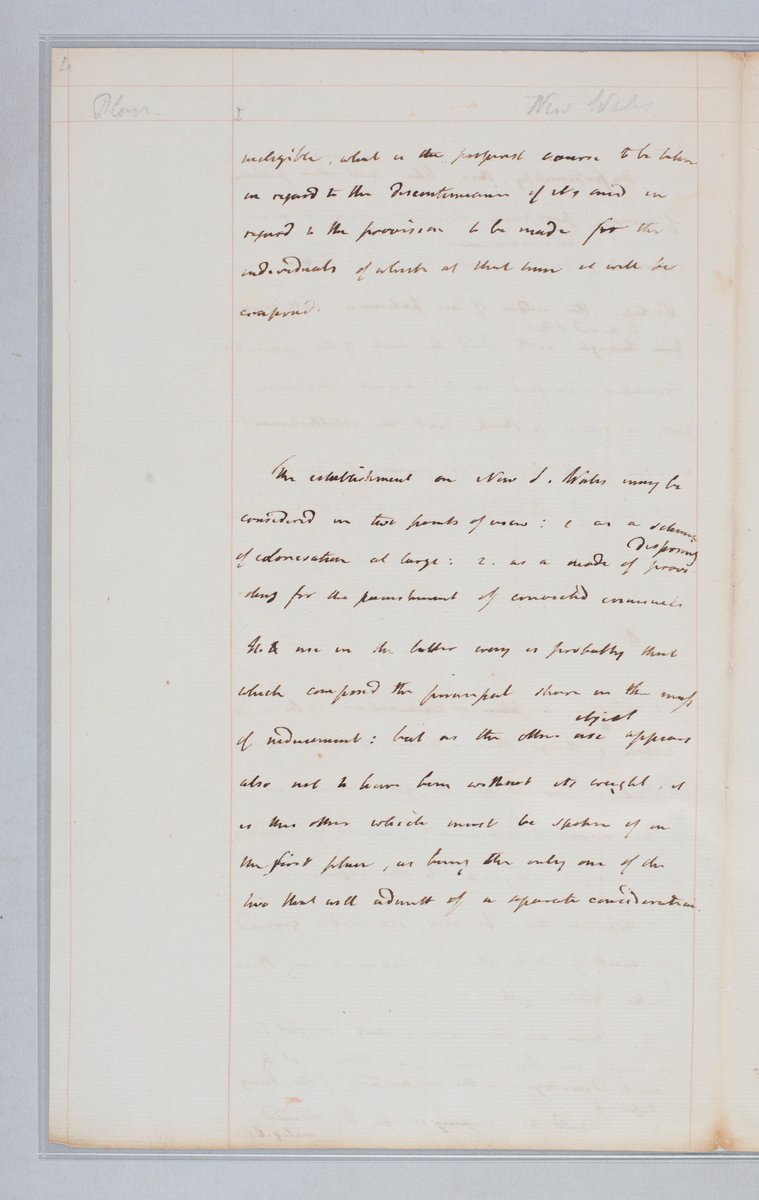 Plan. 1 New Wales
negligible, what is the proposed course to be taken
in regard to the discontinuance of it & and in
regard to the provision to be made for the
individuals of which at that time it will be
composed.
The establishment on New S. Wales may be
considered in two points of view: 1 as a scheme
disposing
of colonisation at large: 2. as a mode of provi
-ding for the punishment of convicted criminals
use in the latter way is probably that
which composed the principal share in the mass
object
of inducement: but as the other use appears
also not to have been without its weight, it
is this other which must be spoken of in
the first place, as being the only one of the
two that will admitt of a separate consideration.